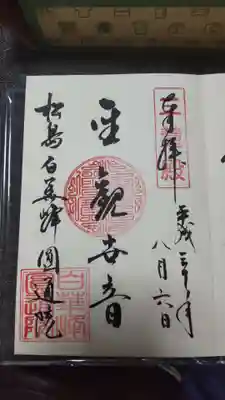 奉拝
平成三十年
八月六日
聖観世音
松島白華峰圓通院